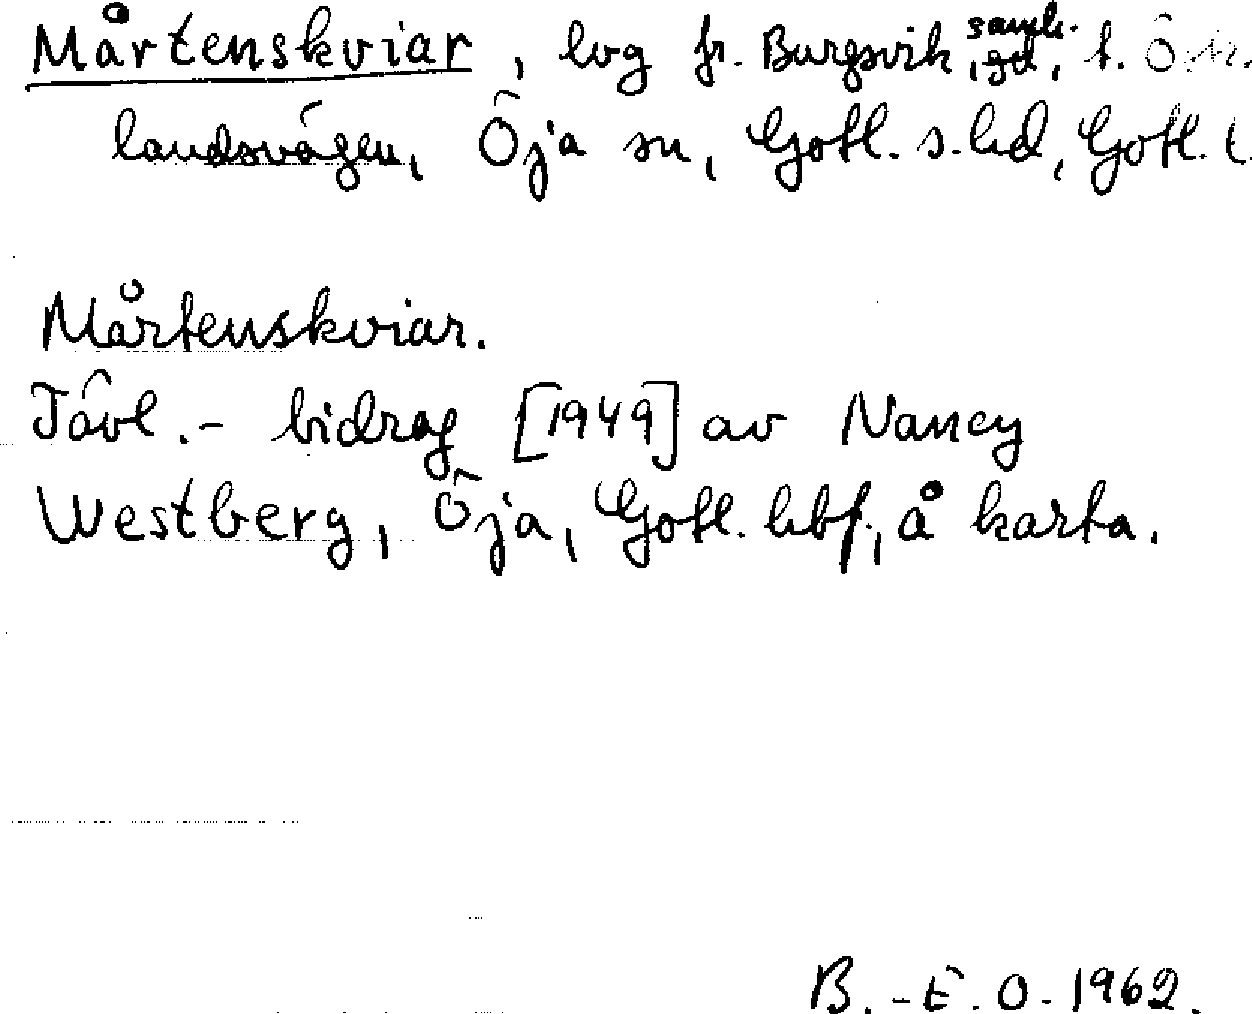 Mårtenskviar, lvg fr. Burgsvik, samh. gd, t.
landsvägen, Öja sn, Gotl. s. hd, Gotl. l.
Mårtenskviar.
Tävl.- bidrag [1949] av Nancy
Westberg, Öja, Gotl. hbf, å karta.
B.-E. O. 1962.